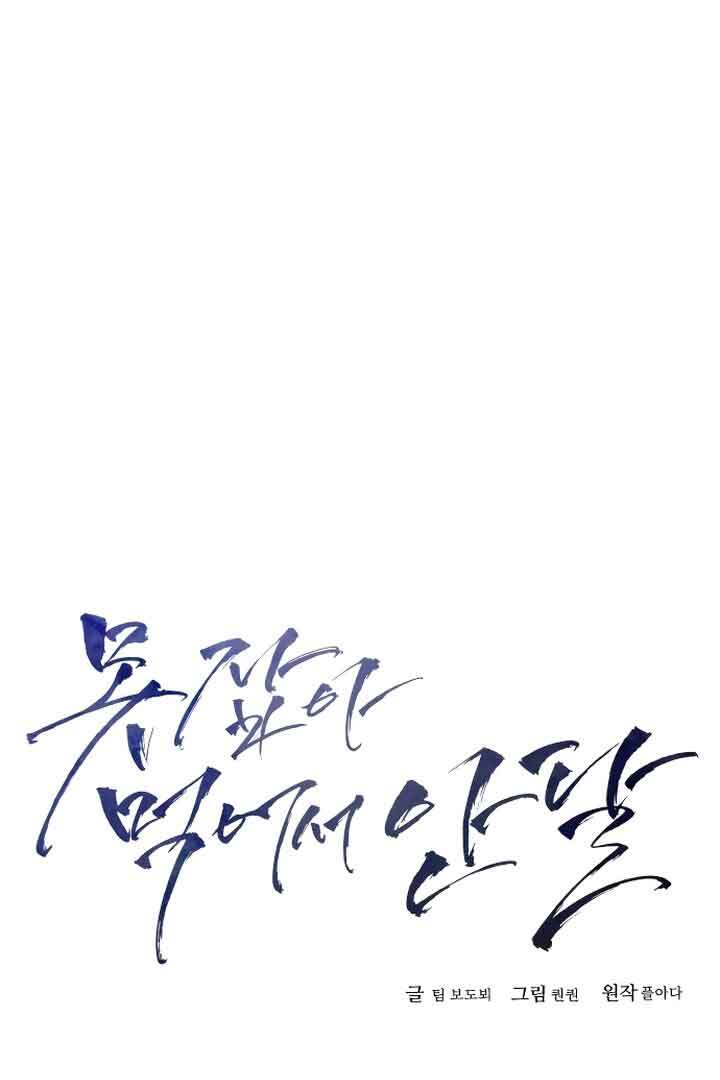 못 잡아
먹어서 안달
글 팀 보도뵈 그림 퀸퀸 원작 플아다